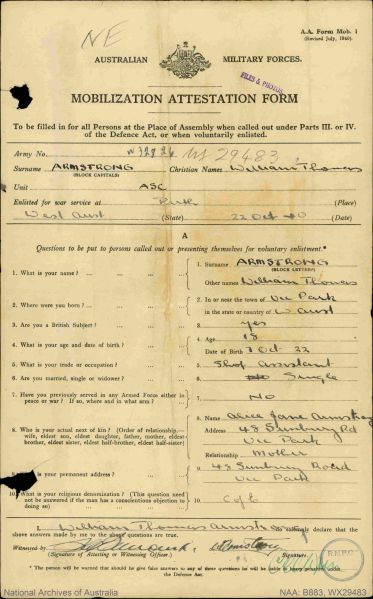 NE
A.A. Form Mob. 1
(Revised July, 1940)
AUSTRALIAN MILITARY FORCES.
FILES & PHOTOS
MOBILIZATION ATTESTATION FORM
To be filled in for all Persons at the Place of Assembly when called out under Parts III. or IV.
of the Defence Act, or when voluntarily enlisted.
Army No. 29483
Surname ARMSTRONG Christian Names William Thomas
(BLOCK CAPITALS)
Unit ASC
Enlisted for war service at Perth (Place)
West Aust (State) 22 Oct 40 (Date)
A
Questions to be put to persons called out or presenting themselves for voluntary enlistment.*
1. What is your name? 1. Surname ARMSTRONG
(BLOCK LETTERS)
Other names William Thomas
2. Where were you born? 2. In or near the town of Vic Park
in the state or country of W Aust
3. Are you a British Subject? 3. yes
4. What is your age and date of birth? 4. Age 18
Date of Birth Oct 22
5. What is your trade or occupation? 5. Shop Assistant
6. Are you married, single or widower? 6. Single
7. Have you previously served in any Armed Force either
in peace or war? If so, where and in what arm? 7. NO
8. Who is your actual next of kin? (Order of relationship,—
wife, eldest son, eldest daughter, father, mother, eldest
brother, eldest sister, eldest half-brother, eldest half-sister)
8. Name Alice Jane Armstrong
Address 48 Sunbury Rd
Vic Park
Relationship Mother
9. What is your permanent address? 9. 48 Sunbury Road
Vic Park
10. What is your religious denomination? (This question need
not be answered if the man has a conscientious objection to
doing so) 10. C of E
I, William Thomas Armstrong solemnly declare that the
above answers made by me to the above questions are true.
Witnessed by
(Signature of Attesting or Witnessing Officer) (Signature)
R.M.P.C.
* The person will be warned that should he give false answers to any of these questions he will be liable to heavy penalties under
the Defence Act.
National Archives of Australia NAA: B883, WX29483